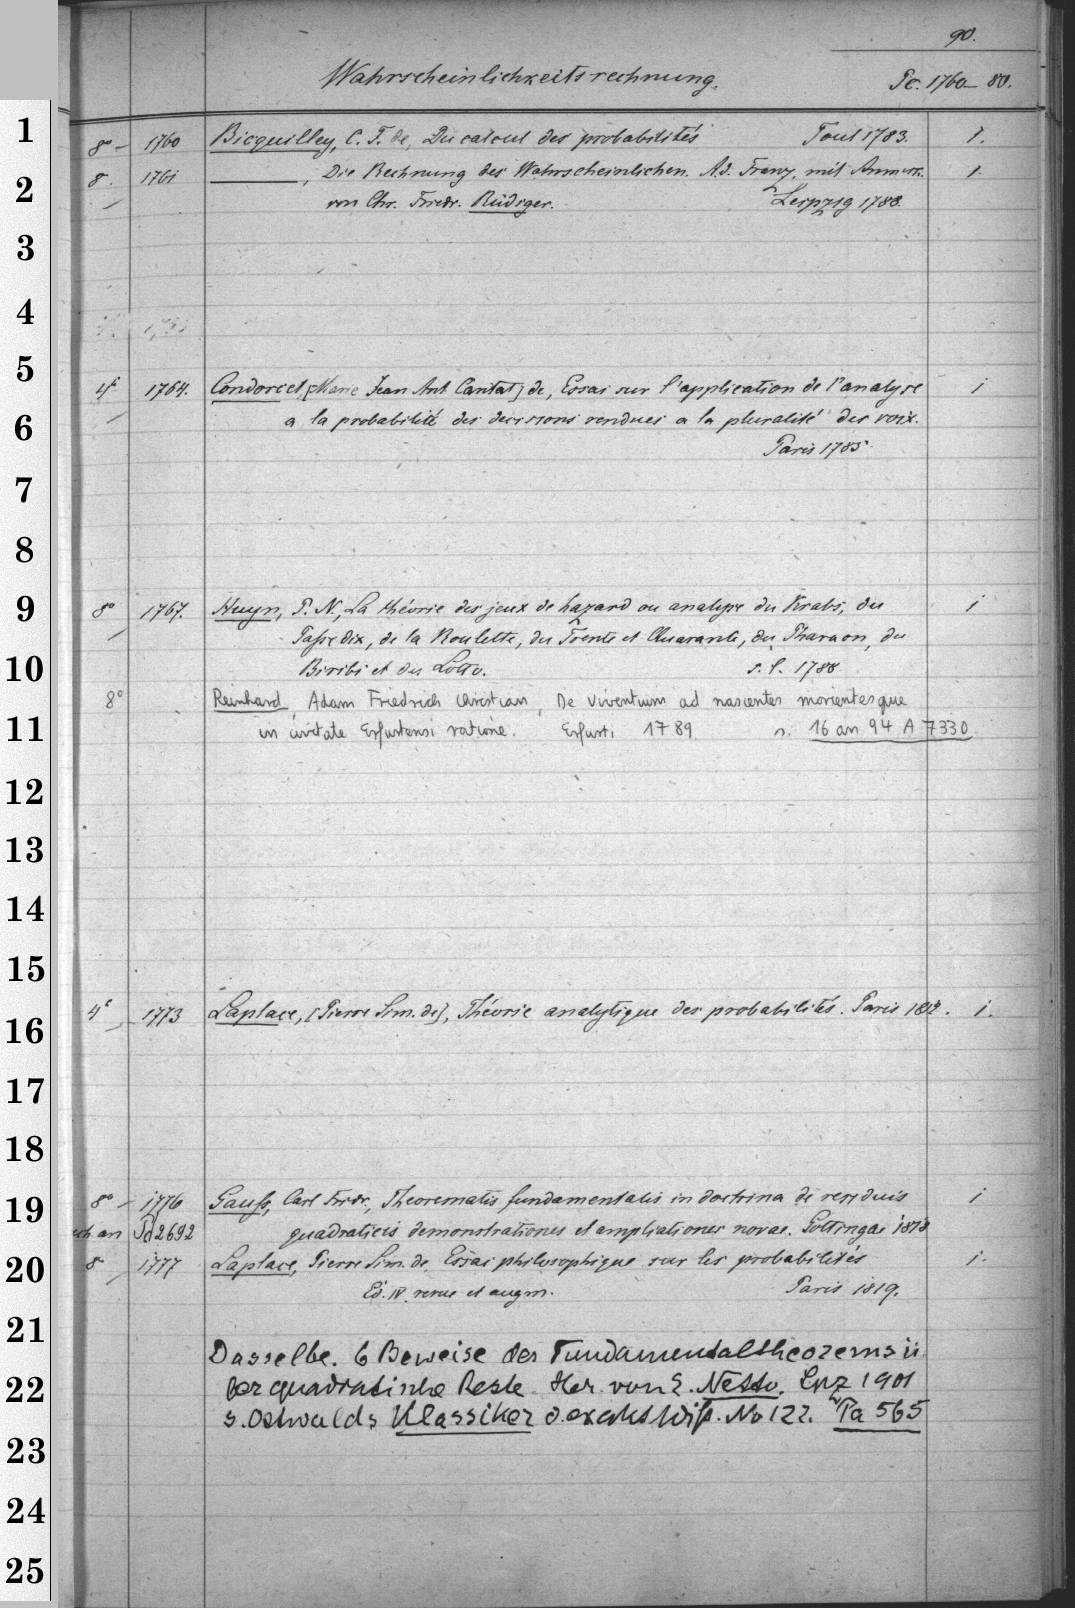 90.
Wahrscheinlichkeitsrechnung. Pc. 1760–80.
1
8° – 1760 Bicquilley, C. F. de, Du calcul des probabilités Toul 1783. 1.
2
8. 1761 ———, Die Rechnung des Wahrscheinlichen. A. d. Franz. mit Anmerk. 1.
von Chr. Friedr. Rüdiger. Leipzig 1788.
3
4
5
4° 1764. Condorcet, [Marie Jean Ant Caritat] de, Essai sur l'application de l'analyse 1
6
a la probabilité des decisions rendues a la pluralité des voix.
Paris 1785
7
8
9
8° 1767. Huyn, P. N., La théorie des jeux de hazard ou analyse du Krabs, du 1
Passe dix, de la Roulette, du Trente et Quarante, du Pharaon, du
10
Biribi et du Lotto. s. l. 1788
8° Reinhard, Adam Friedrich Christian, De viventium ad nascentes morientesque
11
in civitate Erfurtensi ratione. Erfurti 1789 s. 16 an 94 A 7330
12
13
14
15
4° 1773 Laplace, [Pierre Sim. de], Théorie analytique des probabilités. Paris 1812. 1.
16
17
18
19
8° – 1776 Gauss, Carl Fridr., Theorematis fundamentalis in doctrina de residuis 1
ch an Pd 2692 quadraticis demonstrationes et ampliationes novae. Gottingae 1818
20
8 1777 Laplace, Pierre Sim. de, Essai philosophique sur les probabilités 1.
Ed. IV. revue et augm. Paris 1819.
21
Dasselbe. 6 Beweise des Fundamentaltheorems ü
22
ber quadratische Reste. Her. von E. Netto. Lpz 1901
s. Ostwalds Klassiker d. exakt. Wiss. No 122. Pa 565
23
24
25